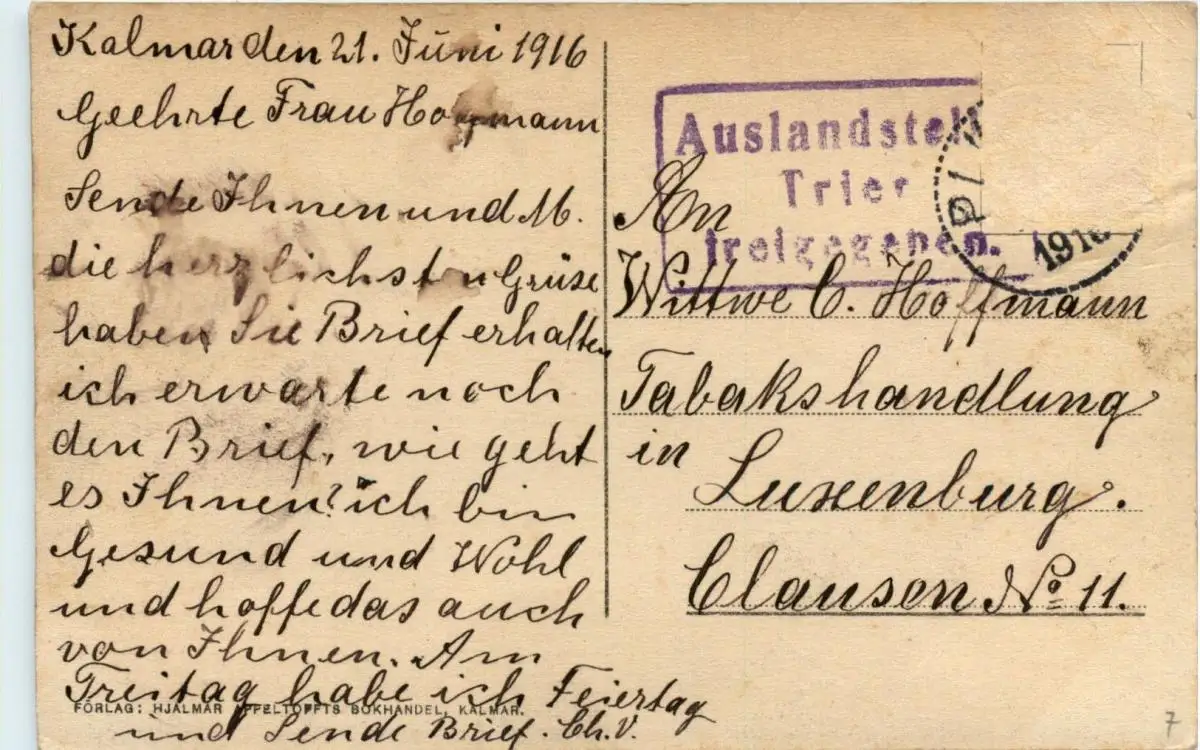 Kalmar den 21. Juni 1916
Geehrte Frau Hoffmann
Sende Ihnen und M.
die herzlichsten Grüse
haben Sie Brief erhalten
ich erwarte noch
den Brief, wie geht
es Ihnen? ich bin
Gesund und Wohl
und hoffe das auch
von Ihnen. Am
Freitag habe ich Feiertag
und Sende Brief. Ch. V.
FÖRLAG: HJALMAR APPELTOFFTS BOKHANDEL, KALMAR.
Auslandstel
Trier
freigegeben.
1916
An
Wittwe C. Hoffmann
Tabakshandlung
in
Luxenburg.
Clausen No 11.
7